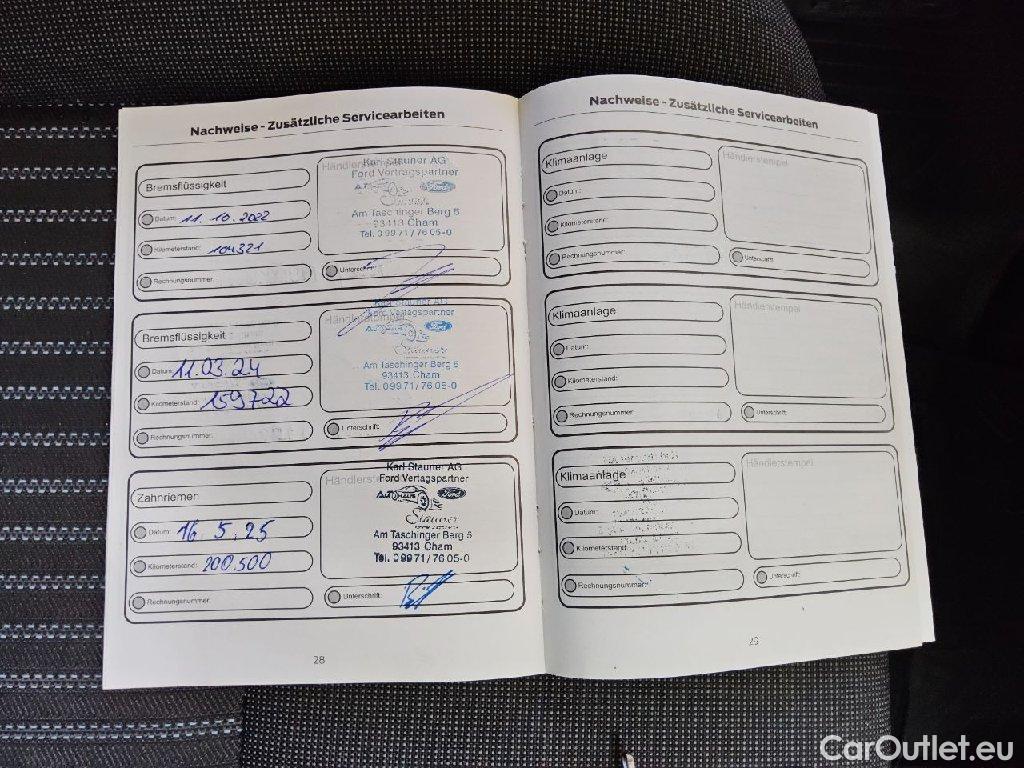 Nachweise - Zusätzliche Servicearbeiten
Bremsflüssigkeit
Datum: 11. 10. 2022
Kilometerstand: 104321
Rechnungsnummer:
Händlerstempel
Karl Stauner AG
Ford Vertragspartner
Ford
Stauner
Am Taschinger Berg 5
93413 Cham
Tel. 09971/7605-0
Unterschrift:
Bremsflüssigkeit
Datum: 11.03.24
Kilometerstand: 159722
Rechnungsnummer:
Händlerstempel
Karl Stauner AG
Ford Vertragspartner
Ford
Stauner
Am Taschinger Berg 5
93413 Cham
Tel. 09971/7605-0
Unterschrift:
Zahnriemen
Datum: 16. 5. 25
Kilometerstand: 200.500
Rechnungsnummer:
Händlerstempel
Karl Stauner AG
Ford Vertragspartner
Ford
Stauner
Am Taschinger Berg 5
93413 Cham
Tel. 09971/7605-0
Unterschrift:
28
Nachweise - Zusätzliche Servicearbeiten
Klimaanlage
Datum:
Kilometerstand:
Rechnungsnummer:
Händlerstempel
Unterschrift:
Klimaanlage
Datum:
Kilometerstand:
Rechnungsnummer:
Händlerstempel
Unterschrift:
Klimaanlage
Datum:
Kilometerstand:
Rechnungsnummer:
Händlerstempel
Unterschrift:
29
CarOutlet.eu